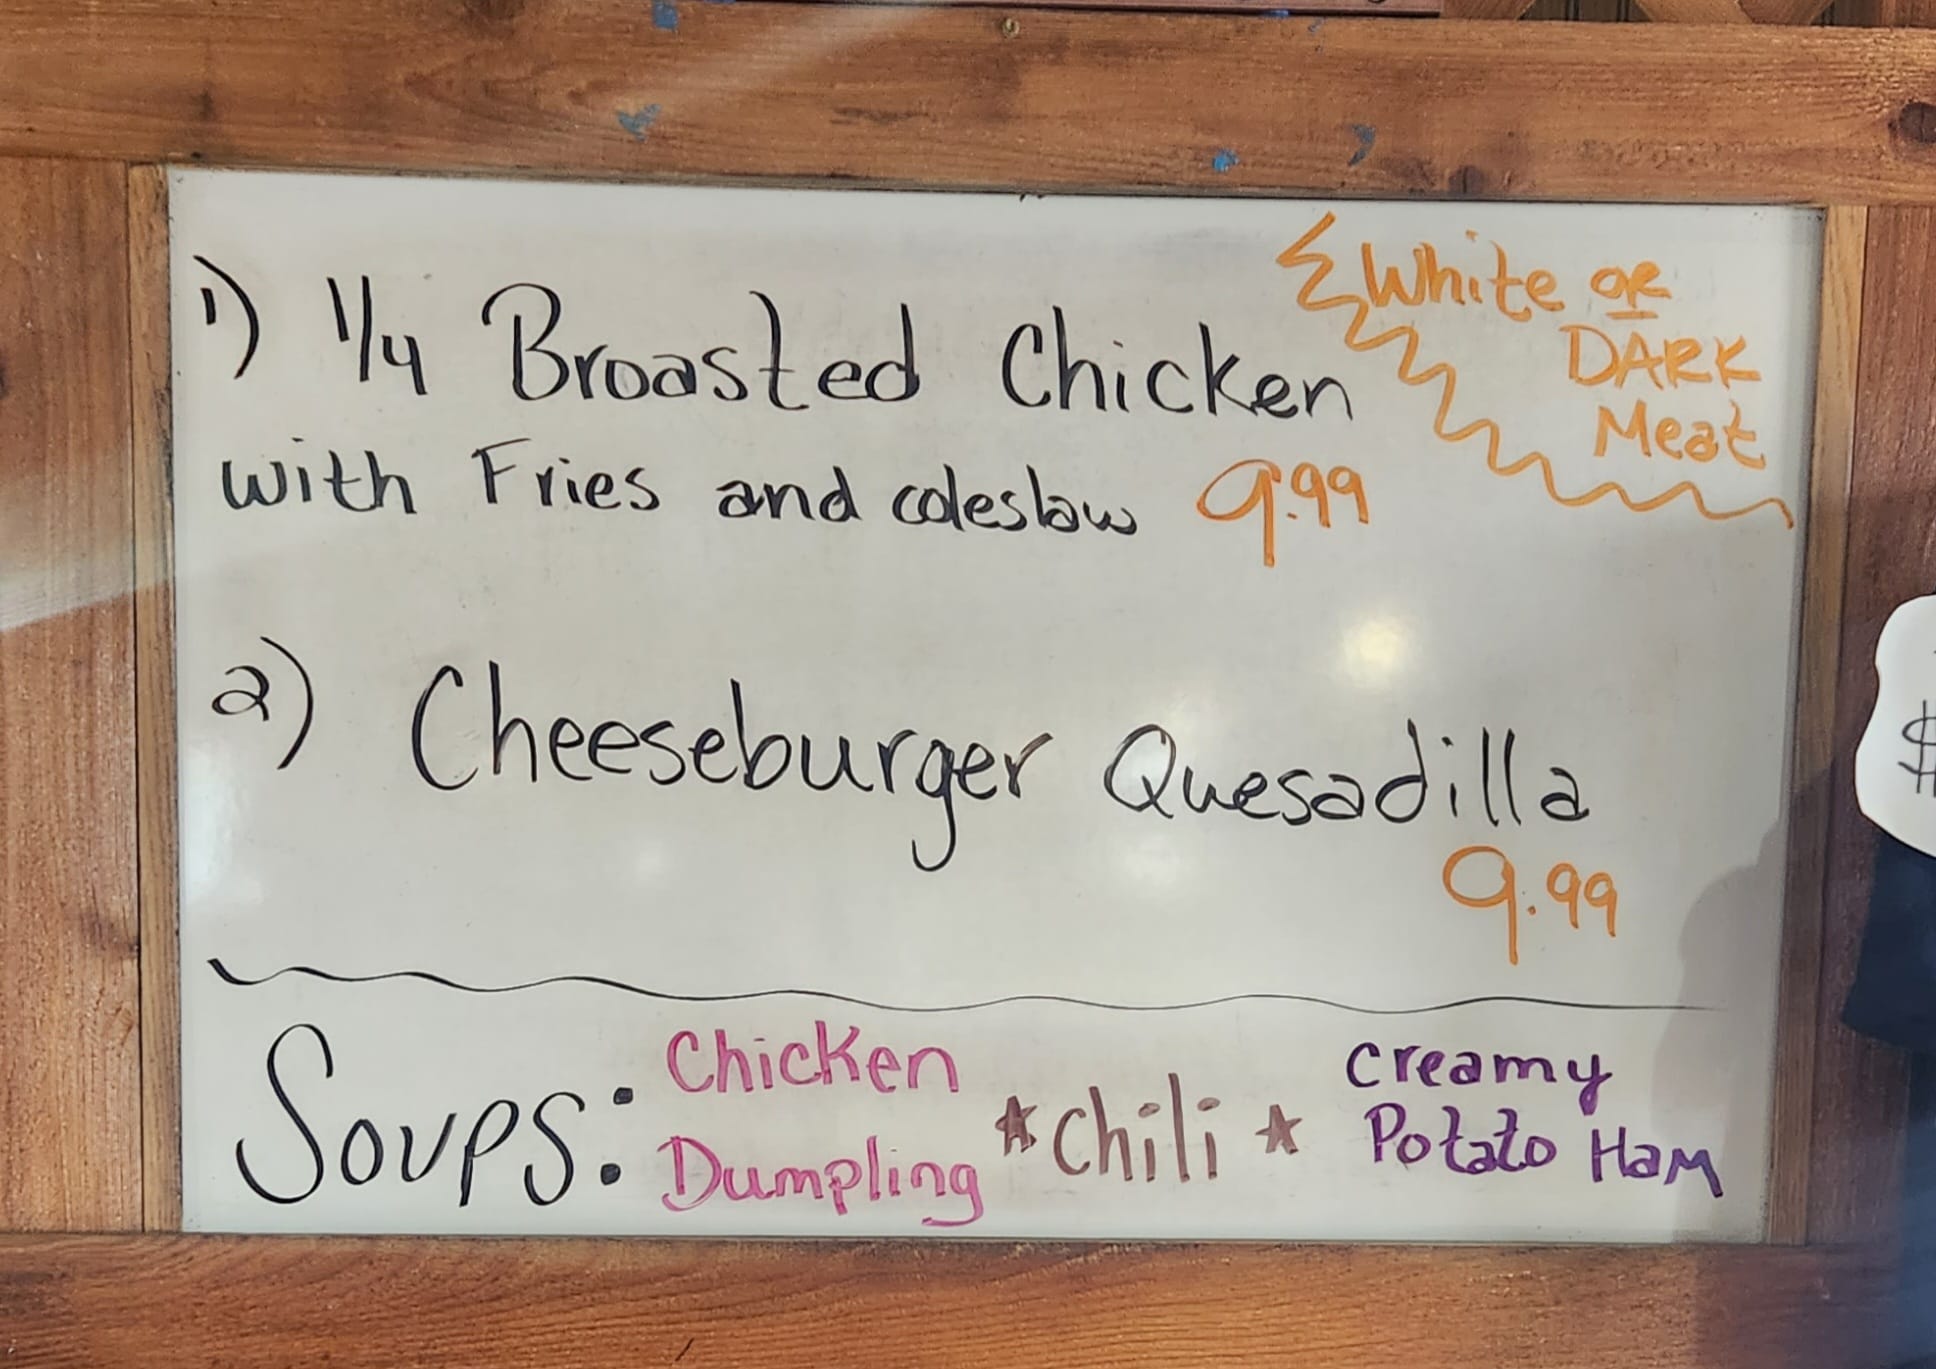 1) 1/4 Broasted Chicken
with Fries and coleslaw 9.99
White OR
DARK
Meat
2) Cheeseburger Quesadilla
9.99
Soups:
Chicken
Dumpling
*Chili*
Creamy
Potato Ham
$